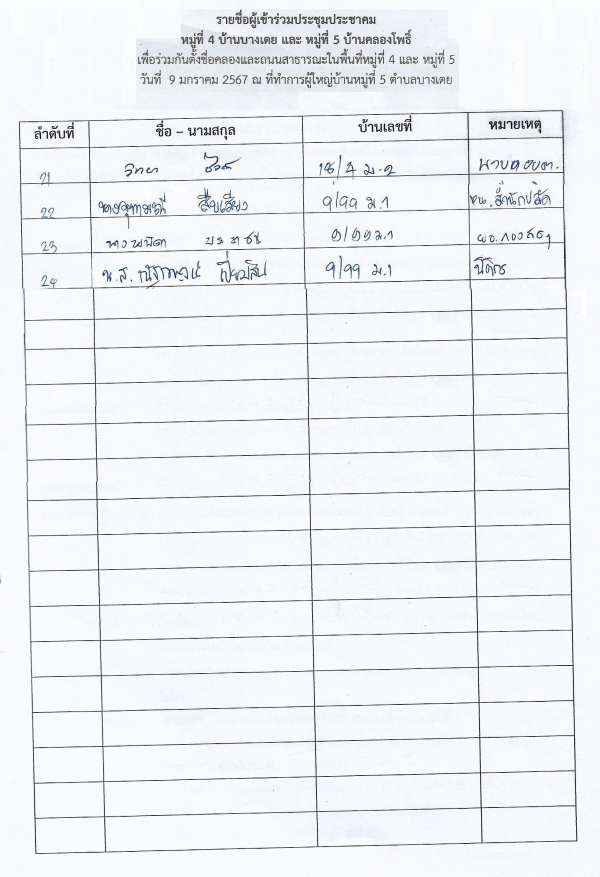 รายชื่อผู้เข้าร่วมประชุมประชาคม
หมู่ที่ 4 บ้านบางเตย และ หมู่ที่ 5 บ้านคลองโพธิ์
เพื่อร่วมกันตั้งชื่อคลองและถนนสาธารณะในพื้นที่หมู่ที่ 4 และ หมู่ที่ 5
วันที่ 9 มกราคม 2567 ณ ที่ทำการผู้ใหญ่บ้านหมู่ที่ 5 ตำบลบางเตย
ลำดับที่ ชื่อ – นามสกุล บ้านเลขที่ หมายเหตุ
21 วิทยา 18/4 ม.2 นายกอบต.
22 สืบเสียง 9/99 ม.1 หน.สำนักปลัด
23 9/99 ม.1 ผอ.กองคลัง
24 น.ส. เปี่ยมสิน 9/99 ม.1 นิติกร